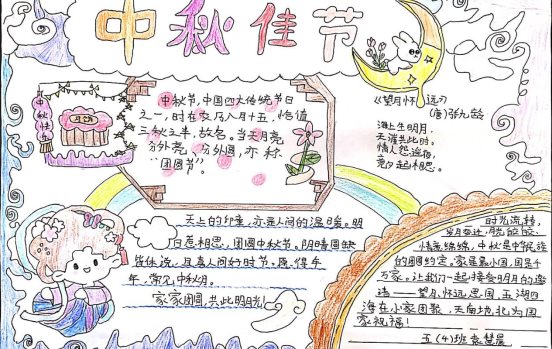 中秋佳节
中秋佳节
中秋节,中国四大传统节日
之一,时在农历八月十五,恰值
三秋之半,故名。当天月亮
分外亮、分外圆,亦称
“团圆节”。
《望月怀远》
(唐)张九龄
海上生明月,
天涯共此时。
情人怨遥夜,
竟夕起相思。
天上的印章,亦是人间的温暖。明
月惹相思,团圆中秋节。阴晴圆缺
皆休说,且喜人间好时节。愿得年
年,常见中秋月。
家家团圆,共此明月光!
时光流转,
岁月变迁,皎皎
情意绵绵,中秋是中华民族
的团圆约定。家是最小国,国是千
万家。让我们一起接受明月的邀
请——望月,怀远,思国,五湖四
海在小家团聚,天南地北为国
家祝福!
五(4)班